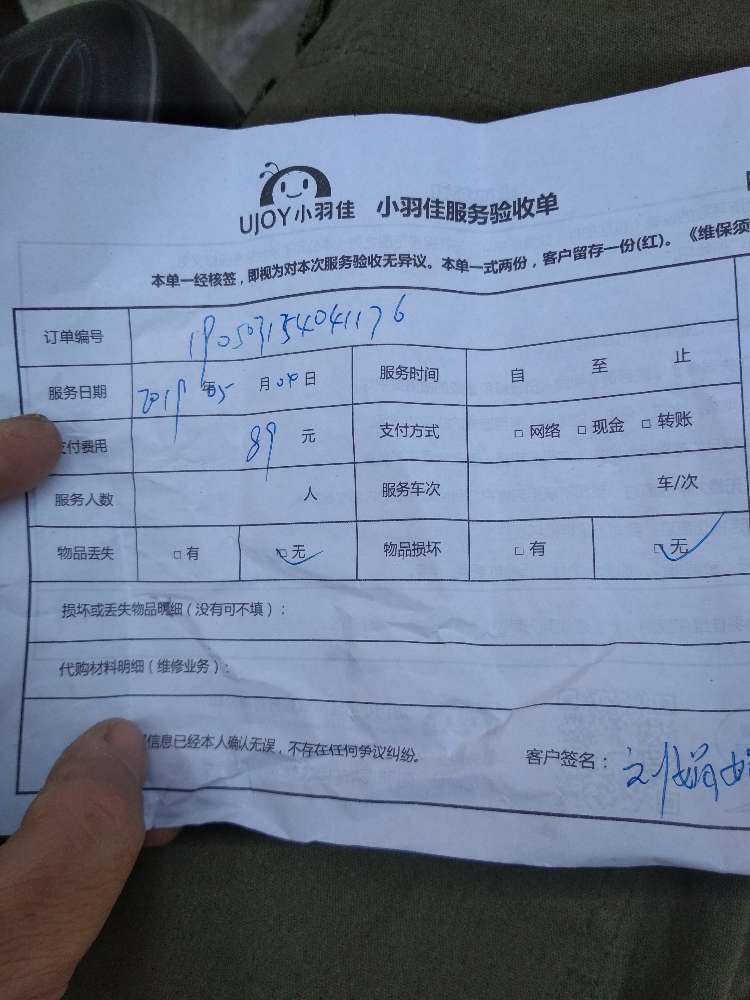 UJOY小羽佳 小羽佳服务验收单
本单一经核签，即视为对本次服务验收无异议。本单一式两份，客户留存一份(红)。《维保须
订单编号 190503154041176
服务日期 2019年05月04日 服务时间 自 至 止
支付费用 89元 支付方式 □网络 □现金 □转账
服务人数 人 服务车次 车/次
物品丢失 □有 □无 物品损坏 □有 □无
损坏或丢失物品明细（没有可不填）：
代购材料明细（维修业务）：
信息已经本人确认无误，不存在任何争议纠纷。 客户签名：